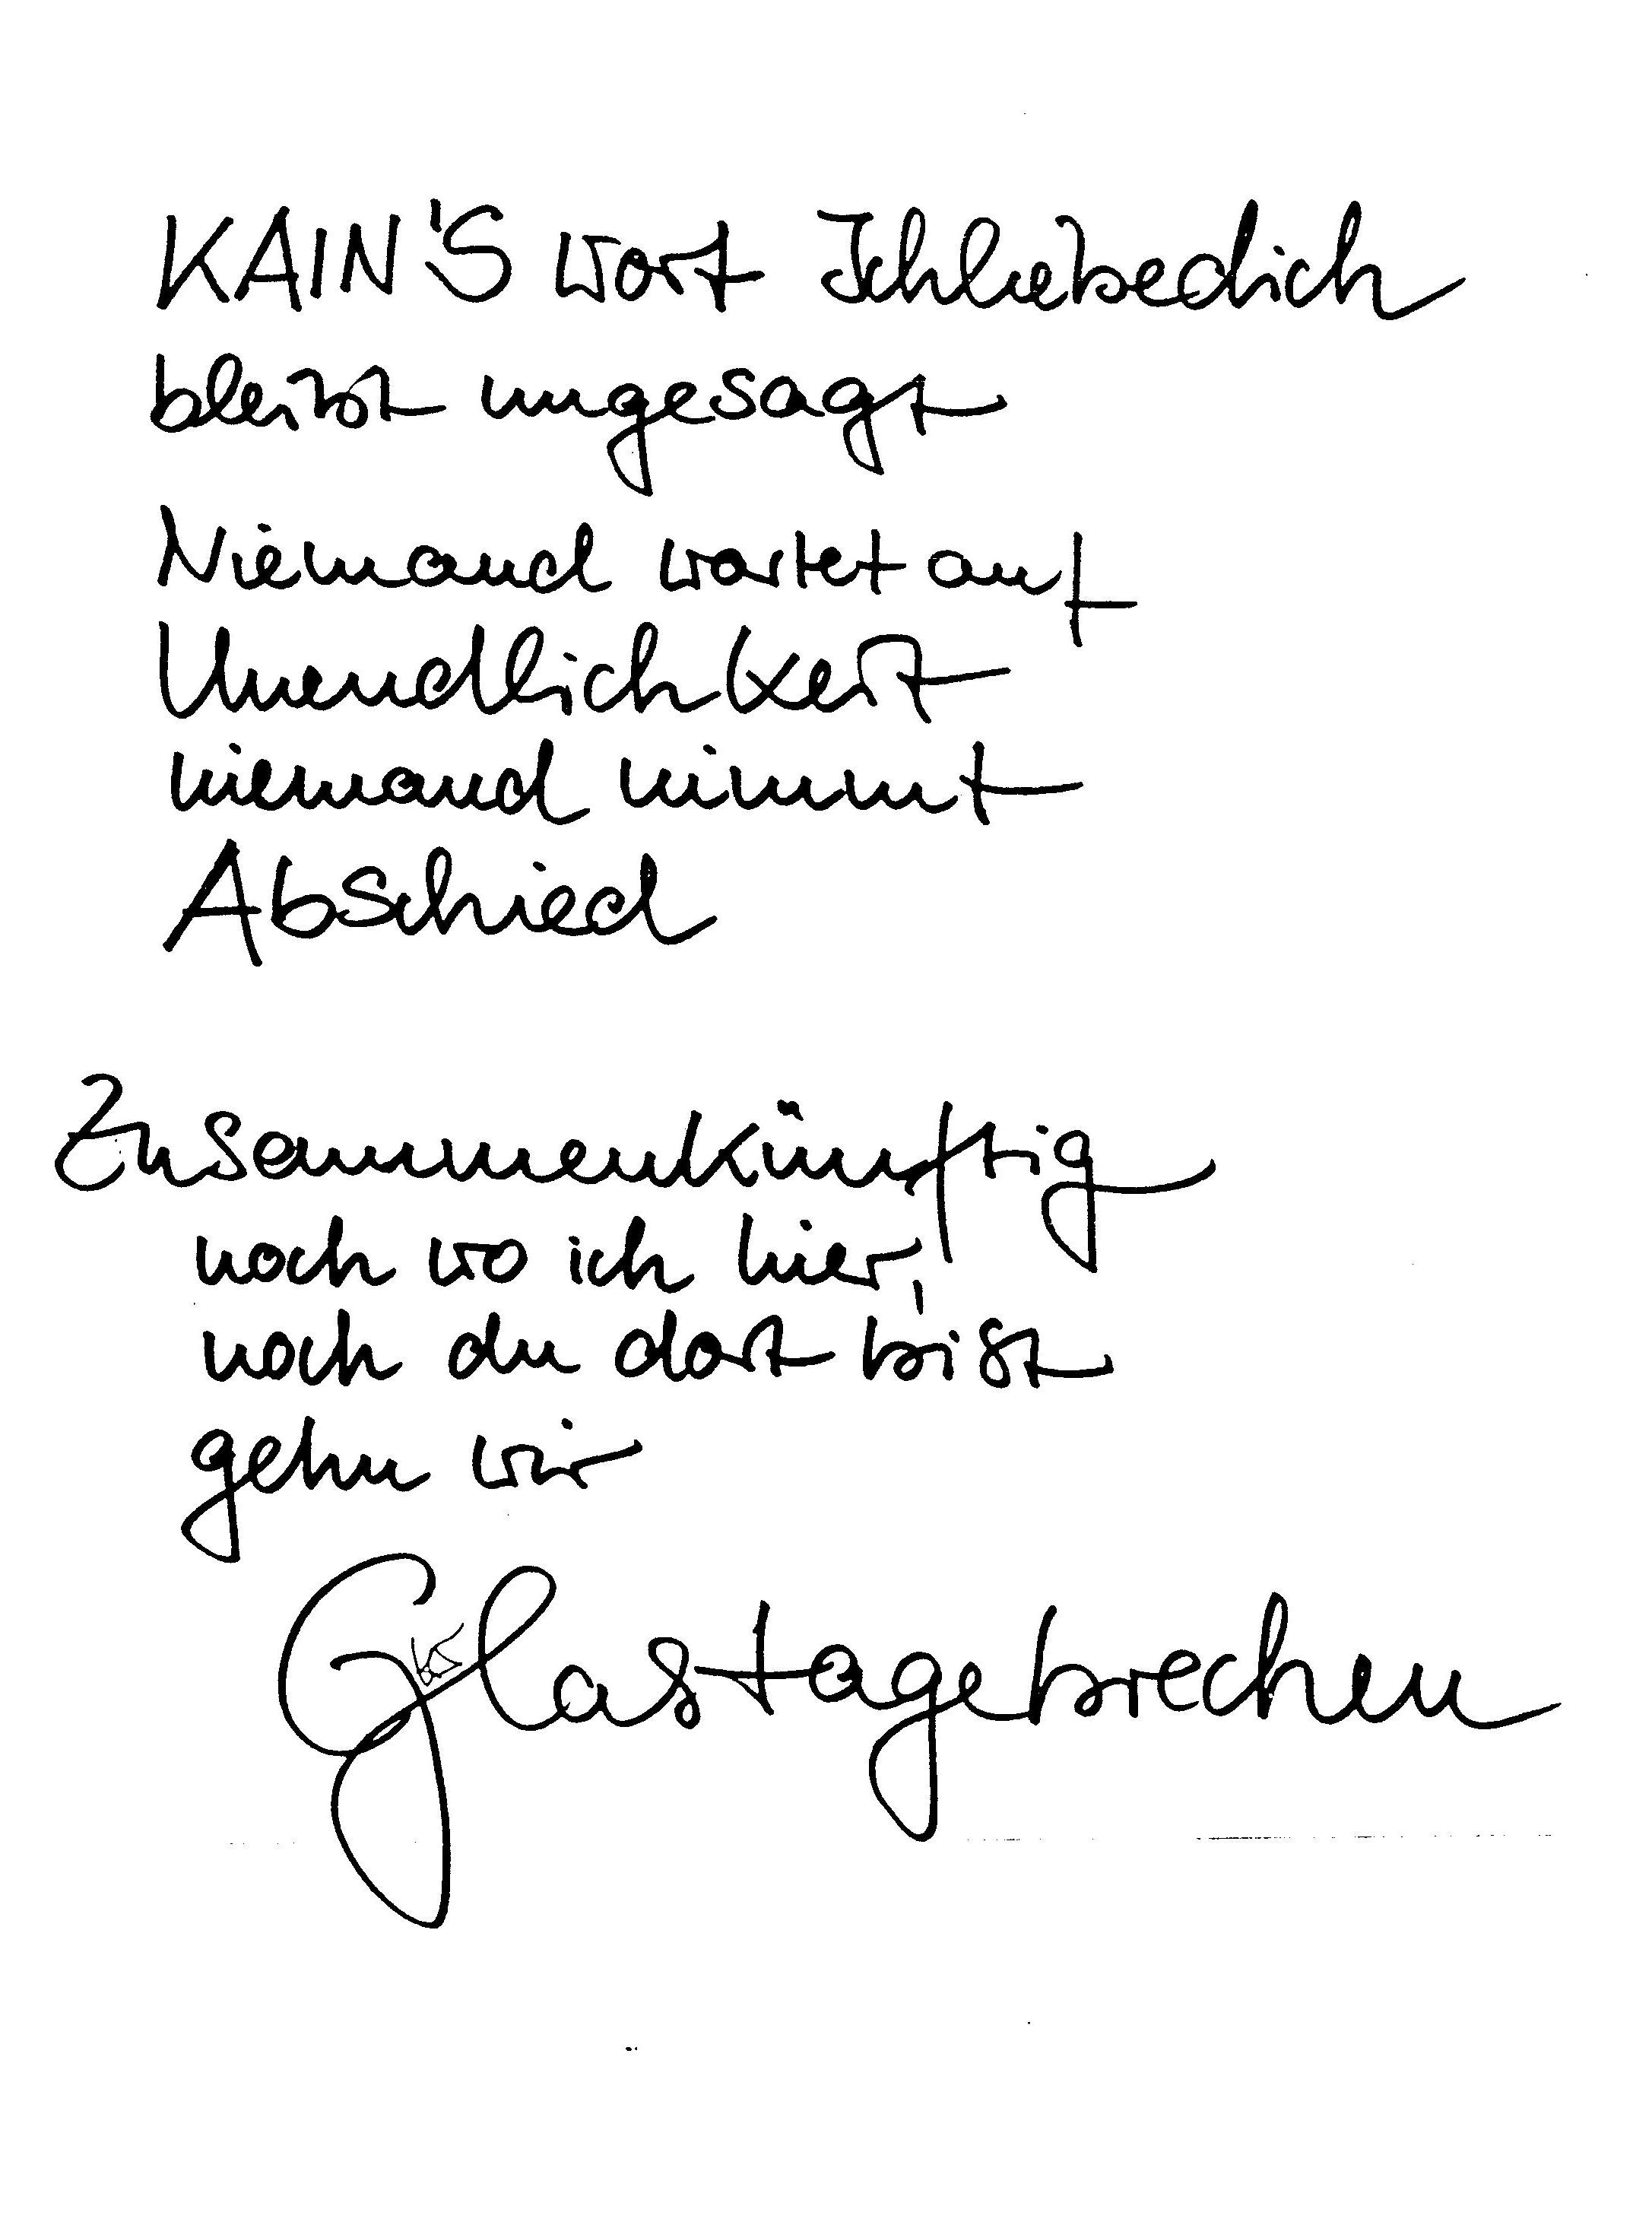 KAIN'S Wort Ichliebedich
bleibt ungesagt
Niemand wartet auf
Unendlichkeit
niemand nimmt
Abschied
Zusammenkünftig
noch wo ich hier,
noch du dort bist
gehn wir
Glastagebrechen